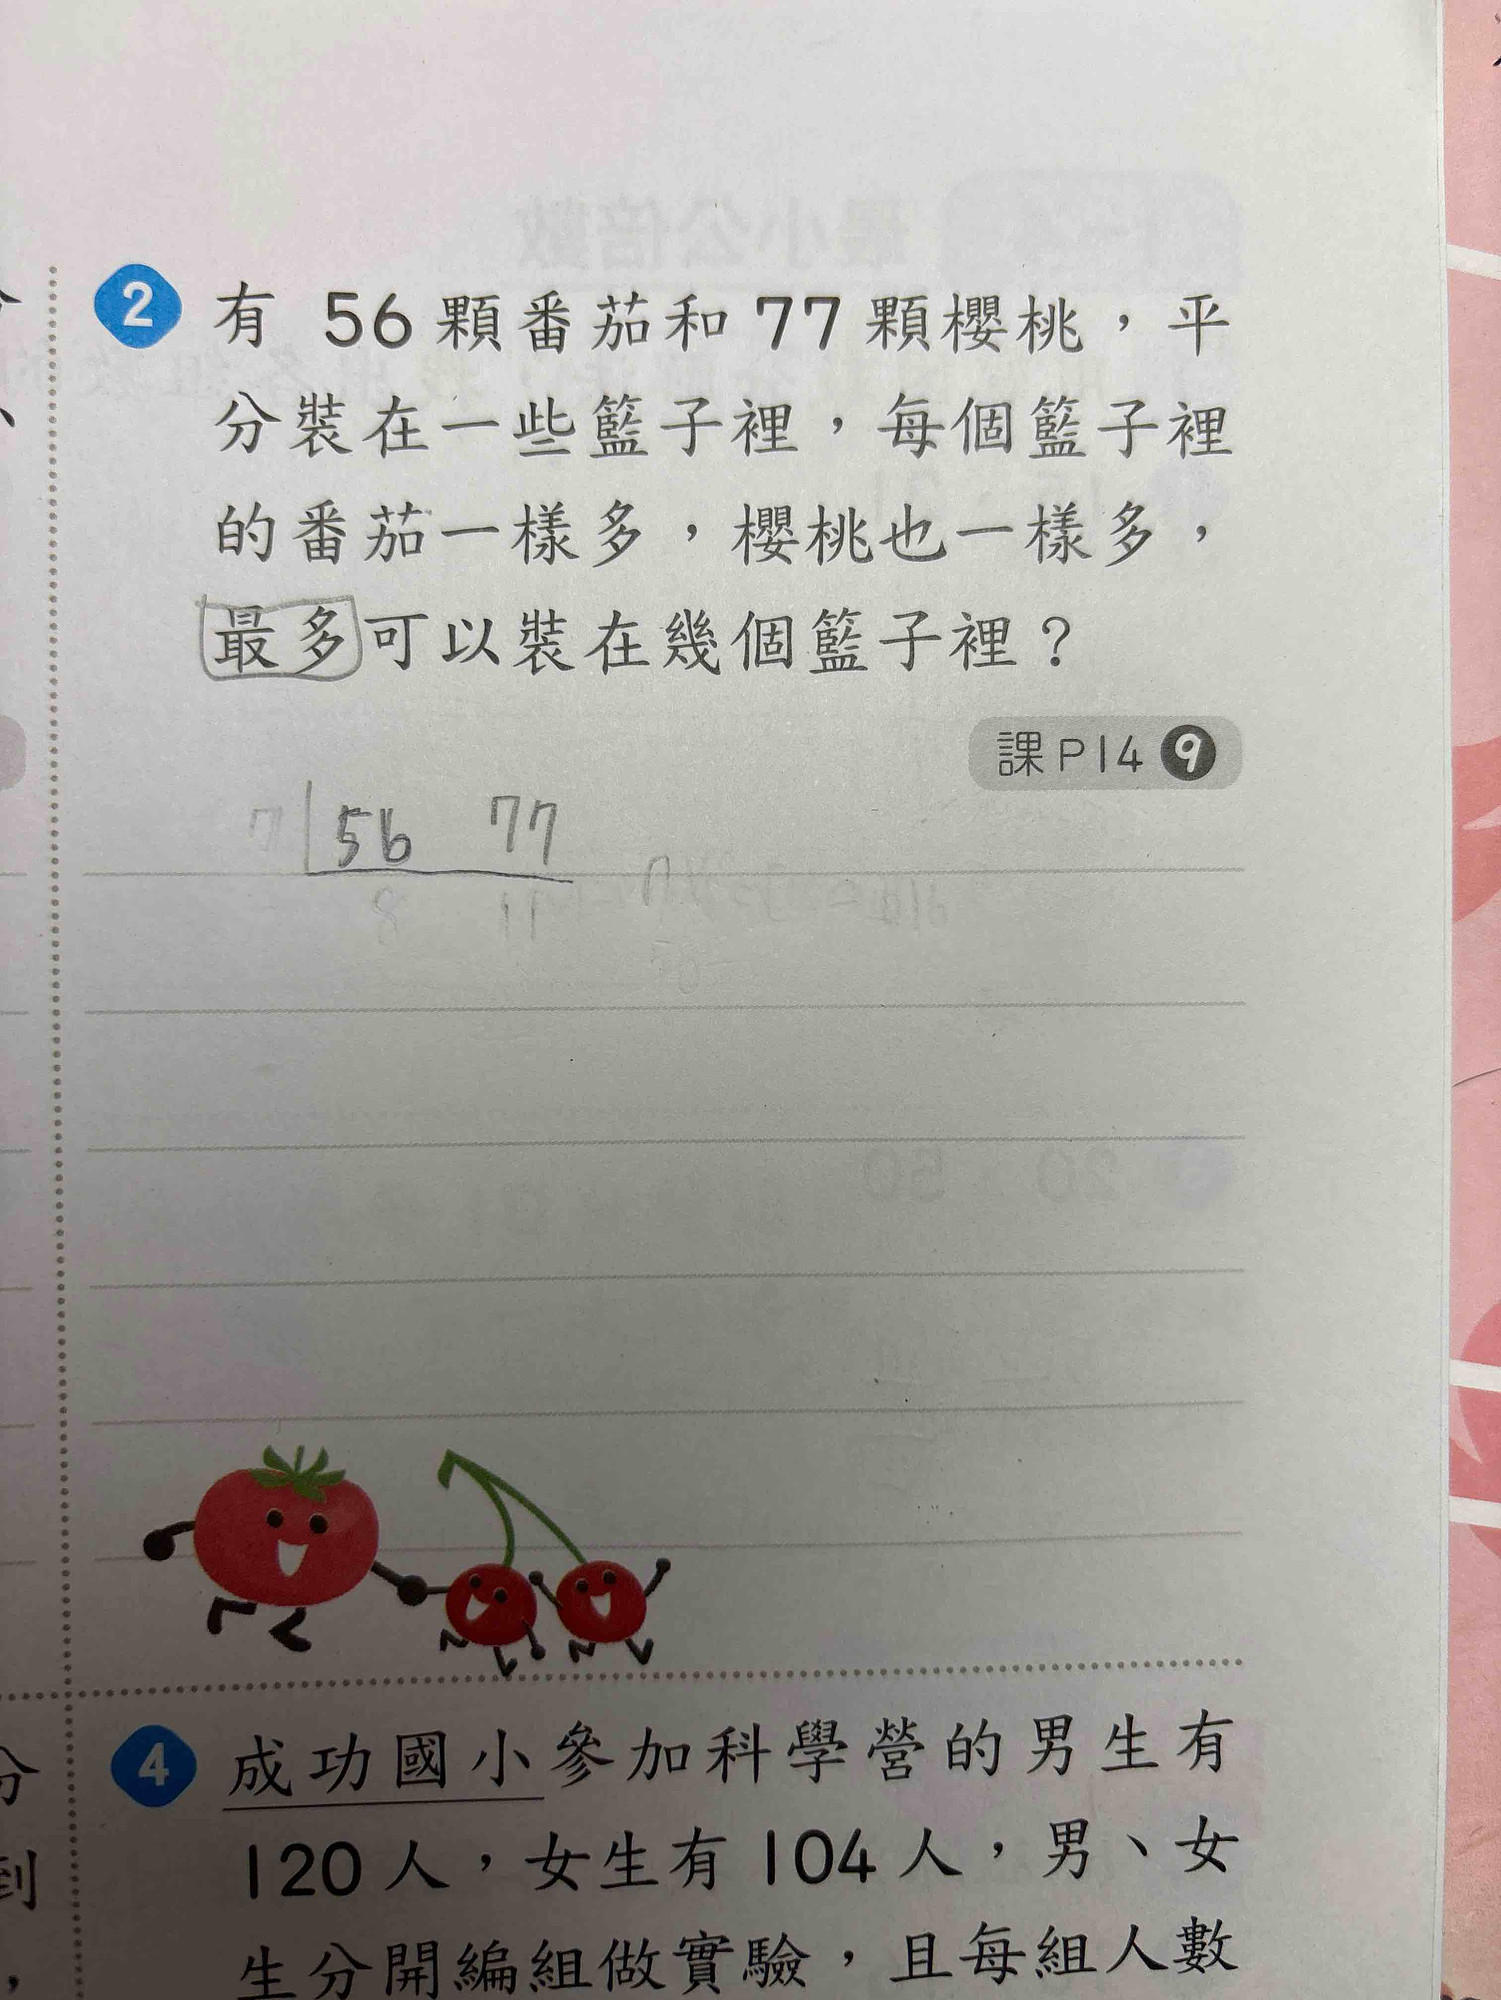 2 有 56 顆番茄和 77 顆櫻桃，平
分裝在一些籃子裡，每個籃子裡
的番茄一樣多，櫻桃也一樣多，
最多可以裝在幾個籃子裡？
課P14 9
7 56 77
8 11
4 成功國小參加科學營的男生有
120人，女生有104人，男、女
生分開編組做實驗，且每組人數
分
到
，